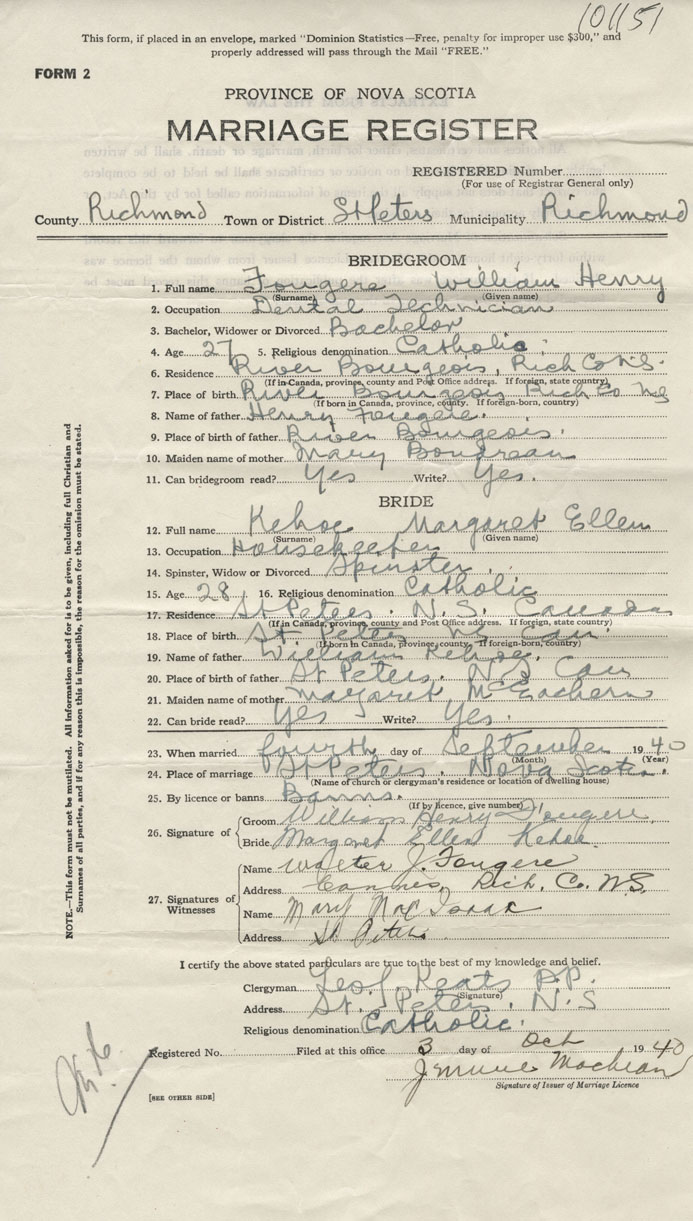 101151
This form, if placed in an envelope, marked "Dominion Statistics—Free, penalty for improper use $300," and
properly addressed will pass through the Mail "FREE."
FORM 2
PROVINCE OF NOVA SCOTIA
MARRIAGE REGISTER
REGISTERED Number
(For use of Registrar General only)
County Richmond Town or District St Peters Municipality Richmond
BRIDEGROOM
1. Full name Fougere William Henry
(Surname) (Given name)
2. Occupation Dental Technician
3. Bachelor, Widower or Divorced Bachelor
4. Age 27 5. Religious denomination Catholic
6. Residence River Bourgeois, Rich Co N.S.
(If in Canada, province, county and Post Office address. If foreign, state country)
7. Place of birth River Bourgeois Rich Co NS
(If born in Canada, province, county. If foreign-born, country)
8. Name of father Henry Fougere.
9. Place of birth of father River Bourgeois.
10. Maiden name of mother Mary Boudreau
11. Can bridegroom read? Yes Write? Yes.
BRIDE
12. Full name Kehoe Margaret Ellen
(Surname) (Given name)
13. Occupation Housekeeper
14. Spinster, Widow or Divorced Spinster
15. Age 28 16. Religious denomination Catholic
17. Residence St Peters. N.S. Canada
(If in Canada, province, county and Post Office address. If foreign, state country)
18. Place of birth St Peters NS Can
(If born in Canada, province, county. If foreign-born, country)
19. Name of father William Kehoe.
20. Place of birth of father St Peters. N.S Can
21. Maiden name of mother Margaret McEachern
22. Can bride read? Yes Write? Yes.
23. When married fourth day of September 1940
(Month) (Year)
24. Place of marriage St Peters. Nova Scotia.
(Name of church or clergyman's residence or location of dwelling house)
25. By licence or banns Banns.
(If by licence, give number)
26. Signature of
Groom William Henry Fougere
Bride Margaret Ellen Kehoe
27. Signatures of Witnesses
Name Walter J. Fougere
Address Cannes, Rich. Co. N.S.
Name Mary MacIsaac
Address St Peters
I certify the above stated particulars are true to the best of my knowledge and belief.
Clergyman Leo J. Keats P.P.
(Signature)
Address St. Peters, N.S
Religious denomination Catholic.
Registered No. Filed at this office 3 day of Oct 1940
Signature of Issuer of Marriage Licence
[SEE OTHER SIDE]
NOTE.—This form must not be mutilated. All information asked for is to be given, including full Christian and
Surnames of all parties, and if for any reason this is impossible, the reason for the omission must be stated.